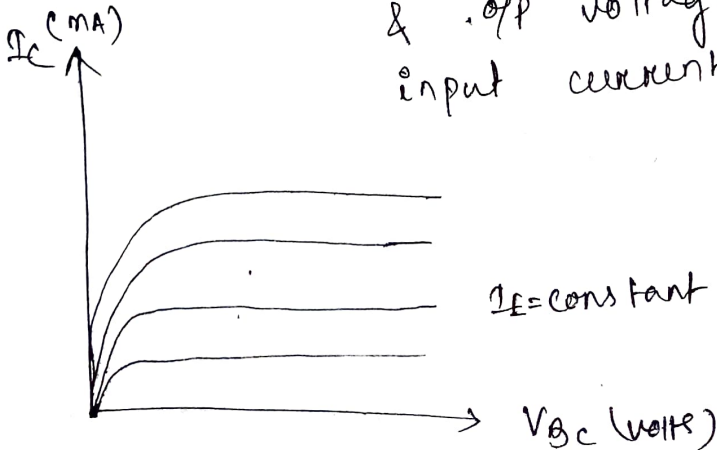 & o/p voltag
input current
Ic (mA)
IE = constant
VBC (volts)